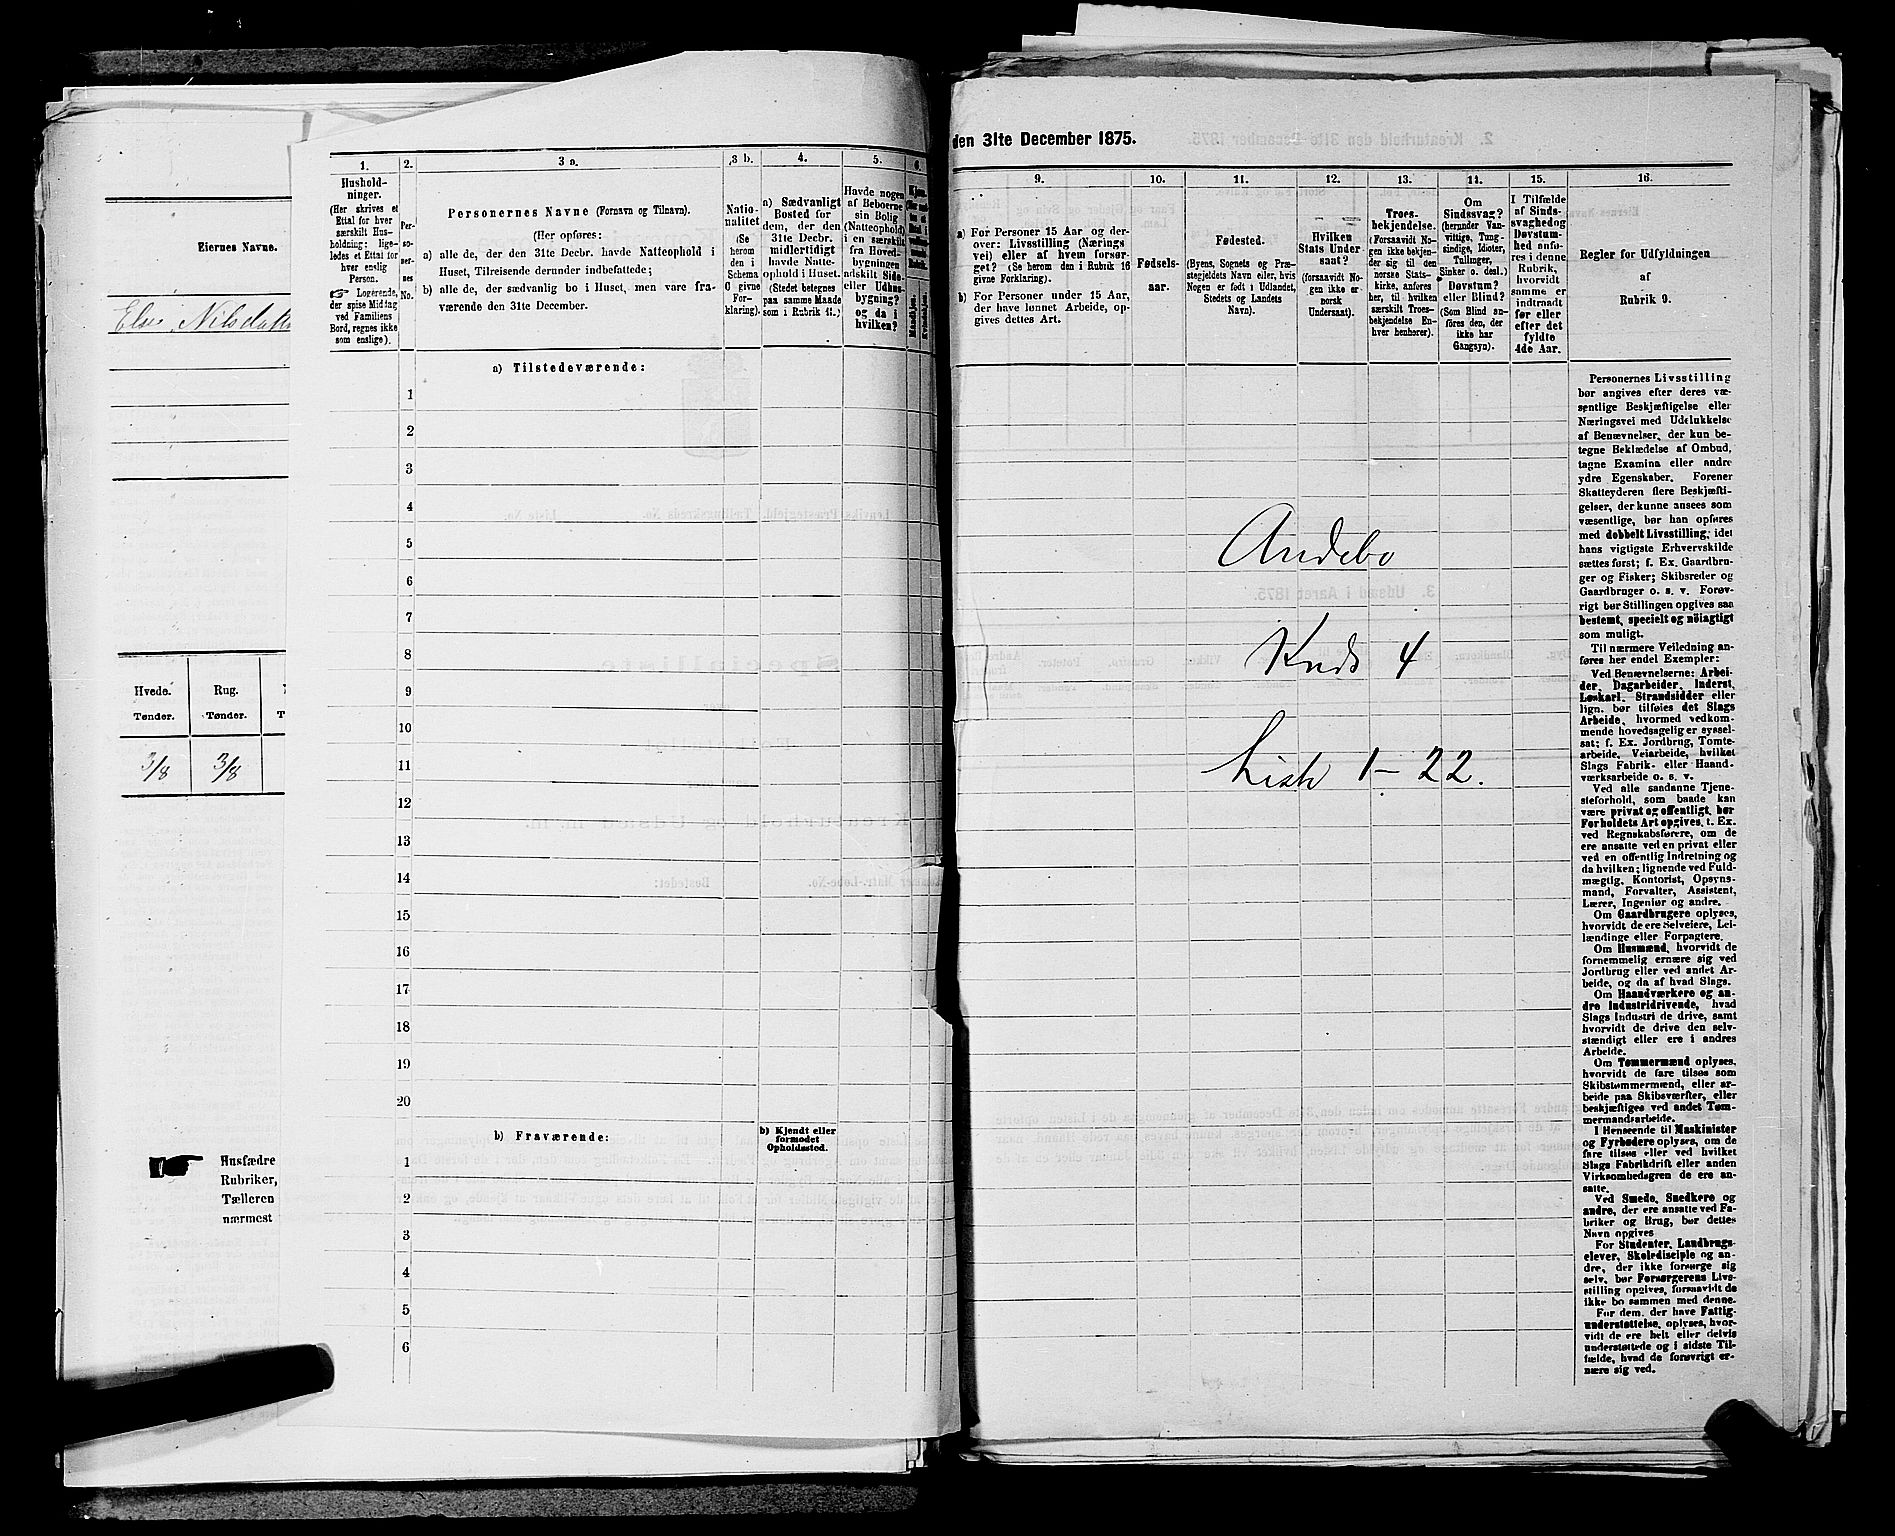 Eiernes Navne.
Else Nilsdatt
Hvede. Rug.
Tønder. Tønder. T
3/8 3/8
Husfædre
Rubriker,
Tælleren
nærmest
1. 2. 3 a. 3 b. 4. 5. 6.
Hushold-
ninger.
(Her skrives et
Ettal for hver
særskilt Hus-
holdning; lige-
ledes et Ettal for
hver enslig
Person.
☞ Logerende,
der spise Middag
ved Familiens
Bord, regnes ikke
som enslige).
Per-
so-
ner-
nes
No.
Personernes Navne (Fornavn og Tilnavn).
(Her opføres:
a) alle de, der den 31te Decbr. havde Natteophold i
Huset, Tilreisende derunder indbefattede;
b) alle de, der sædvanlig bo i Huset, men vare fra-
værende den 31te December.
Natio-
nalitet
(Se
herom
den i
Schema
C givne
For-
klaring).
a) Sædvanligt
Bosted for
dem, der den
31te Decbr.
midlertidigt
havde Natte-
ophold i Huset.
(Stedet betegnes
paa samme Maade
som i Rubrik 11.)
Havde nogen
af Beboerne
sin Bolig
(Natteophold)
i en særskilt
fra Hoved-
bygningen
adskilt Side-
eller Udhus-
bygning?
og da i
hvilken?
a) Tilstedeværende:
1
2
3
4
5
6
7
8
9
10
11
12
13
14
15
16
17
18
19
20
b) Fraværende:
b) Kjendt eller
formodet
Opholdssted.
1
2
3
4
5
6
den 31te December 1875.
9. 10. 11. 12. 13. 14. 15. 16.
a) For Personer 15 Aar og der-
over: Livsstilling (Nærings
vei) eller af hvem forsør-
get? (Se herom den i Rubrik 16
givne Forklaring).
b) For Personer under 15 Aar,
der have lønnet Arbeide, op-
gives dettes Art.
Fødsels-
aar.
Fødested.
(Byens, Sognets og Præ-
stegjeldets Navn eller, hvis
Nogen er født i Udlandet,
Stedets og Landets
Navn).
Hvilken
Stats Under-
saat?
(forsaavidt No-
gen ikke er
norsk
Undersaat).
Troes-
bekjendelse.
(Forsaavidt No-
gen ikke bekjen-
der sig til den
norske Stats-
kirke, anføres
her, til hvilken
særskilt Troes-
bekjendelse En-
hver henhører).
Om
Sindssvag?
(herunder Van-
vittige, Tung-
sindige, Idioter,
Tullinger,
Sinker o. desl.)
Døvstum?
eller Blind?
(Som Blind an-
føres den, der
ikke har
Gangsyn).
I Tilfælde
af Sinds-
svaghed og
Døvstum-
hed anfø-
res i denne
Rubrik,
hvorvidt
samme er
indtraadt
før eller
efter det
fyldte
4de Aar.
Regler for Udfyldningen
af
Rubrik 9.
Andebo
Krds 4
Liste 1 – 22.
Personernes Livsstilling
bør angives efter deres væ-
sentlige Beskjæftigelse eller
Næringsvei med Udelukkelse
af Benævnelser, der kun be-
tegne Beklædelse af Ombud,
tagne Examina eller andre
ydre Egenskaber. Forener
Skatteyderen flere Beskjæfti-
gelser, der kunne ansees som
væsentlige, bør han opføres
med dobbelt Livsstilling, idet
hans vigtigste Erhvervskilde
sættes først; f. Ex. Gaardbru-
ger og Fisker; Skibsreder og
Gaardbruger o. s. v. Forøv-
rigt bør Stillingen opgives saa
bestemt, specielt og nöiagtigt
som muligt.
Til nærmere Veiledning an-
føres her endel Exempler:
Ved Benævnelserne: Arbei-
der, Dagarbeider, Inderst,
Løskarl, Strandsidder eller
lign. bør tilføies det Slags
Arbeide, hvormed vedkom-
mende hovedsagelig er syssel-
sat; f. Ex. Jordbrug, Tomte-
arbeide, Veiarbeide, hvilket
Slags Fabrik- eller Haand-
værksarbeide o. s. v.
Ved alle saadanne Tjene-
steforhold, som baade kan
være privat og offentligt, bør
Forholdets Art opgives, t. Ex.
ved Regnskabsførere, om de
ere ansatte ved en privat eller
ved en offentlig Indretning og
da hvilken; lignende ved Fuld-
mægtig, Kontorist, Opsyns-
mand, Forvalter, Assistent,
Lærer, Ingeniør og andre.
Om Gaardbrugere oplyses,
hvorvidt de ere Selveiere, Lei-
lændinge eller Forpagtere.
Om Husmænd, hvorvidt de
fornemmelig ernære sig ved
Jordbrug eller ved andet Ar-
beide, og da af hvad Slags.
Om Haandværkere og an-
dre Industridrivende, hvad
Slags Industri de drive, samt
hvorvidt de drive den selv-
stændigt eller ere i andres
Arbeide.
Om Tømmermænd oplyses,
hvorvidt de fare tilsøs som
Skibstømmermænd, eller ar-
beide paa Skibsværfter, eller
beskjæftiges ved andet Tøm-
mermandsarbeide.
I Henseende til Maskinister
og Fyrbødere oplyses, om de
fare tilsøs eller ved hvilket
Slags Fabrikdrift eller anden
Virksombedsgren de ere an-
satte.
Ved Smede, Snedkere og
andre, der ere ansatte ved Fa-
briker og Brug, bør dettes
Navn opgives
For Studenter, Landbrugs-
elever, Skoledisciple og an-
dre, der ikke forsørge sig
selv, bør Forsørgerens Livs-
stilling opgives, forsaavidt de
ikke bo sammen med denne.
For dem, der have Fattig-
understøttelse, oplyses, hvor-
vidt de ere helt eller delvis
understøttede og i sidste Til-
fælde, hvad de forøvrigt er-
nære sig ved.